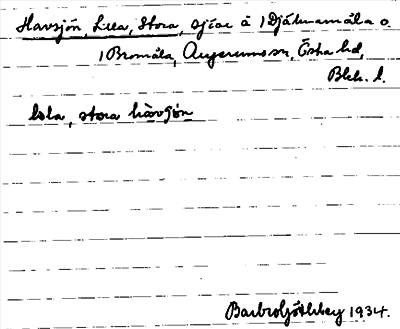 Havsjön, Lilla, Stora, sjöar å 1 Djäknamåla o.
1 Bromåla, Augerums sn, Östra hd,
Blek. l.
lsla, stora hàvʃön
Barbro Götlthey 1934.